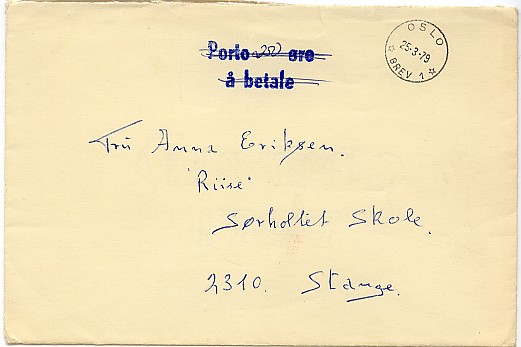 Porto 250 øre
å betale
OSLO
25-3-79
BREV 1
Fru Anna Eriksen.
"Riise"
Sørholtet Skole.
2310. Stange.